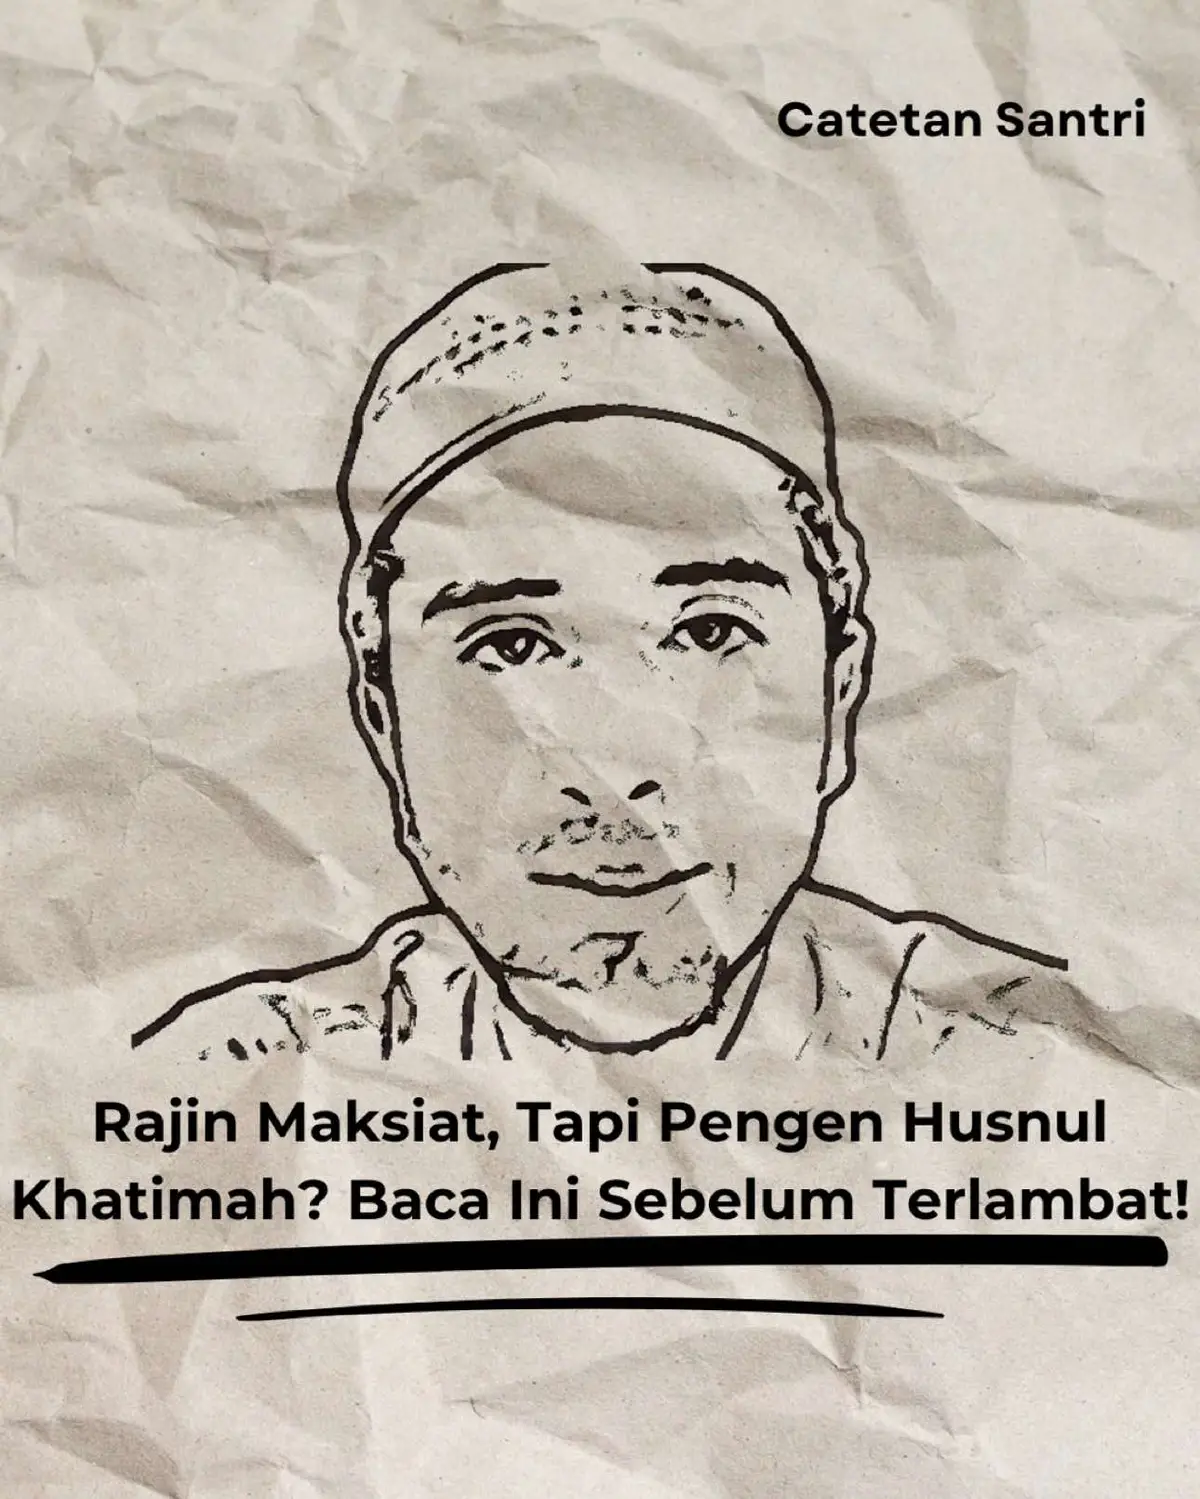 Catetan Santri
Rajin Maksiat, Tapi Pengen Husnul
Khatimah? Baca Ini Sebelum Terlambat!